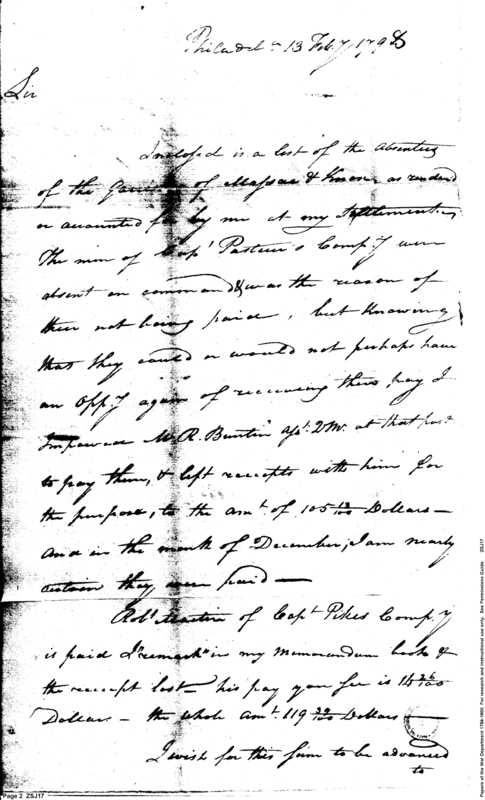 Philadelᵃ 13 Feby 1798
Sir
Inclosed is a list of the absentees
of the Garrison of Massac & Knox as rendered
or accounted for by me at my Settlement.
The men of Capᵗ Pasteur's Compy were
absent on command & was the reason of
their not being paid, but Knowing
that they could or would not perhaps have
an Oppy again of receiving their pay I
Impowered Mr R. Buntin Asᵗ QM. at that post
to pay them, & left receipts with him for
the purpose, to the amᵗ of 105 Dollars —
and in the month of December, I am nearly
certain they were paid —
Robᵗ of Capᵗ Pikes Compy
is paid remark in my Memorandum book &
the receipt lost — his pay you see is 26/100
Dollars — the whole amᵗ 119 39/100 Dollars —
I wish for this sum to be advanced
to
Page 2 ZSJ17
Papers of the War Department 1784-1800. For research and instructional use only. See Permissions Guide. ZSJ17